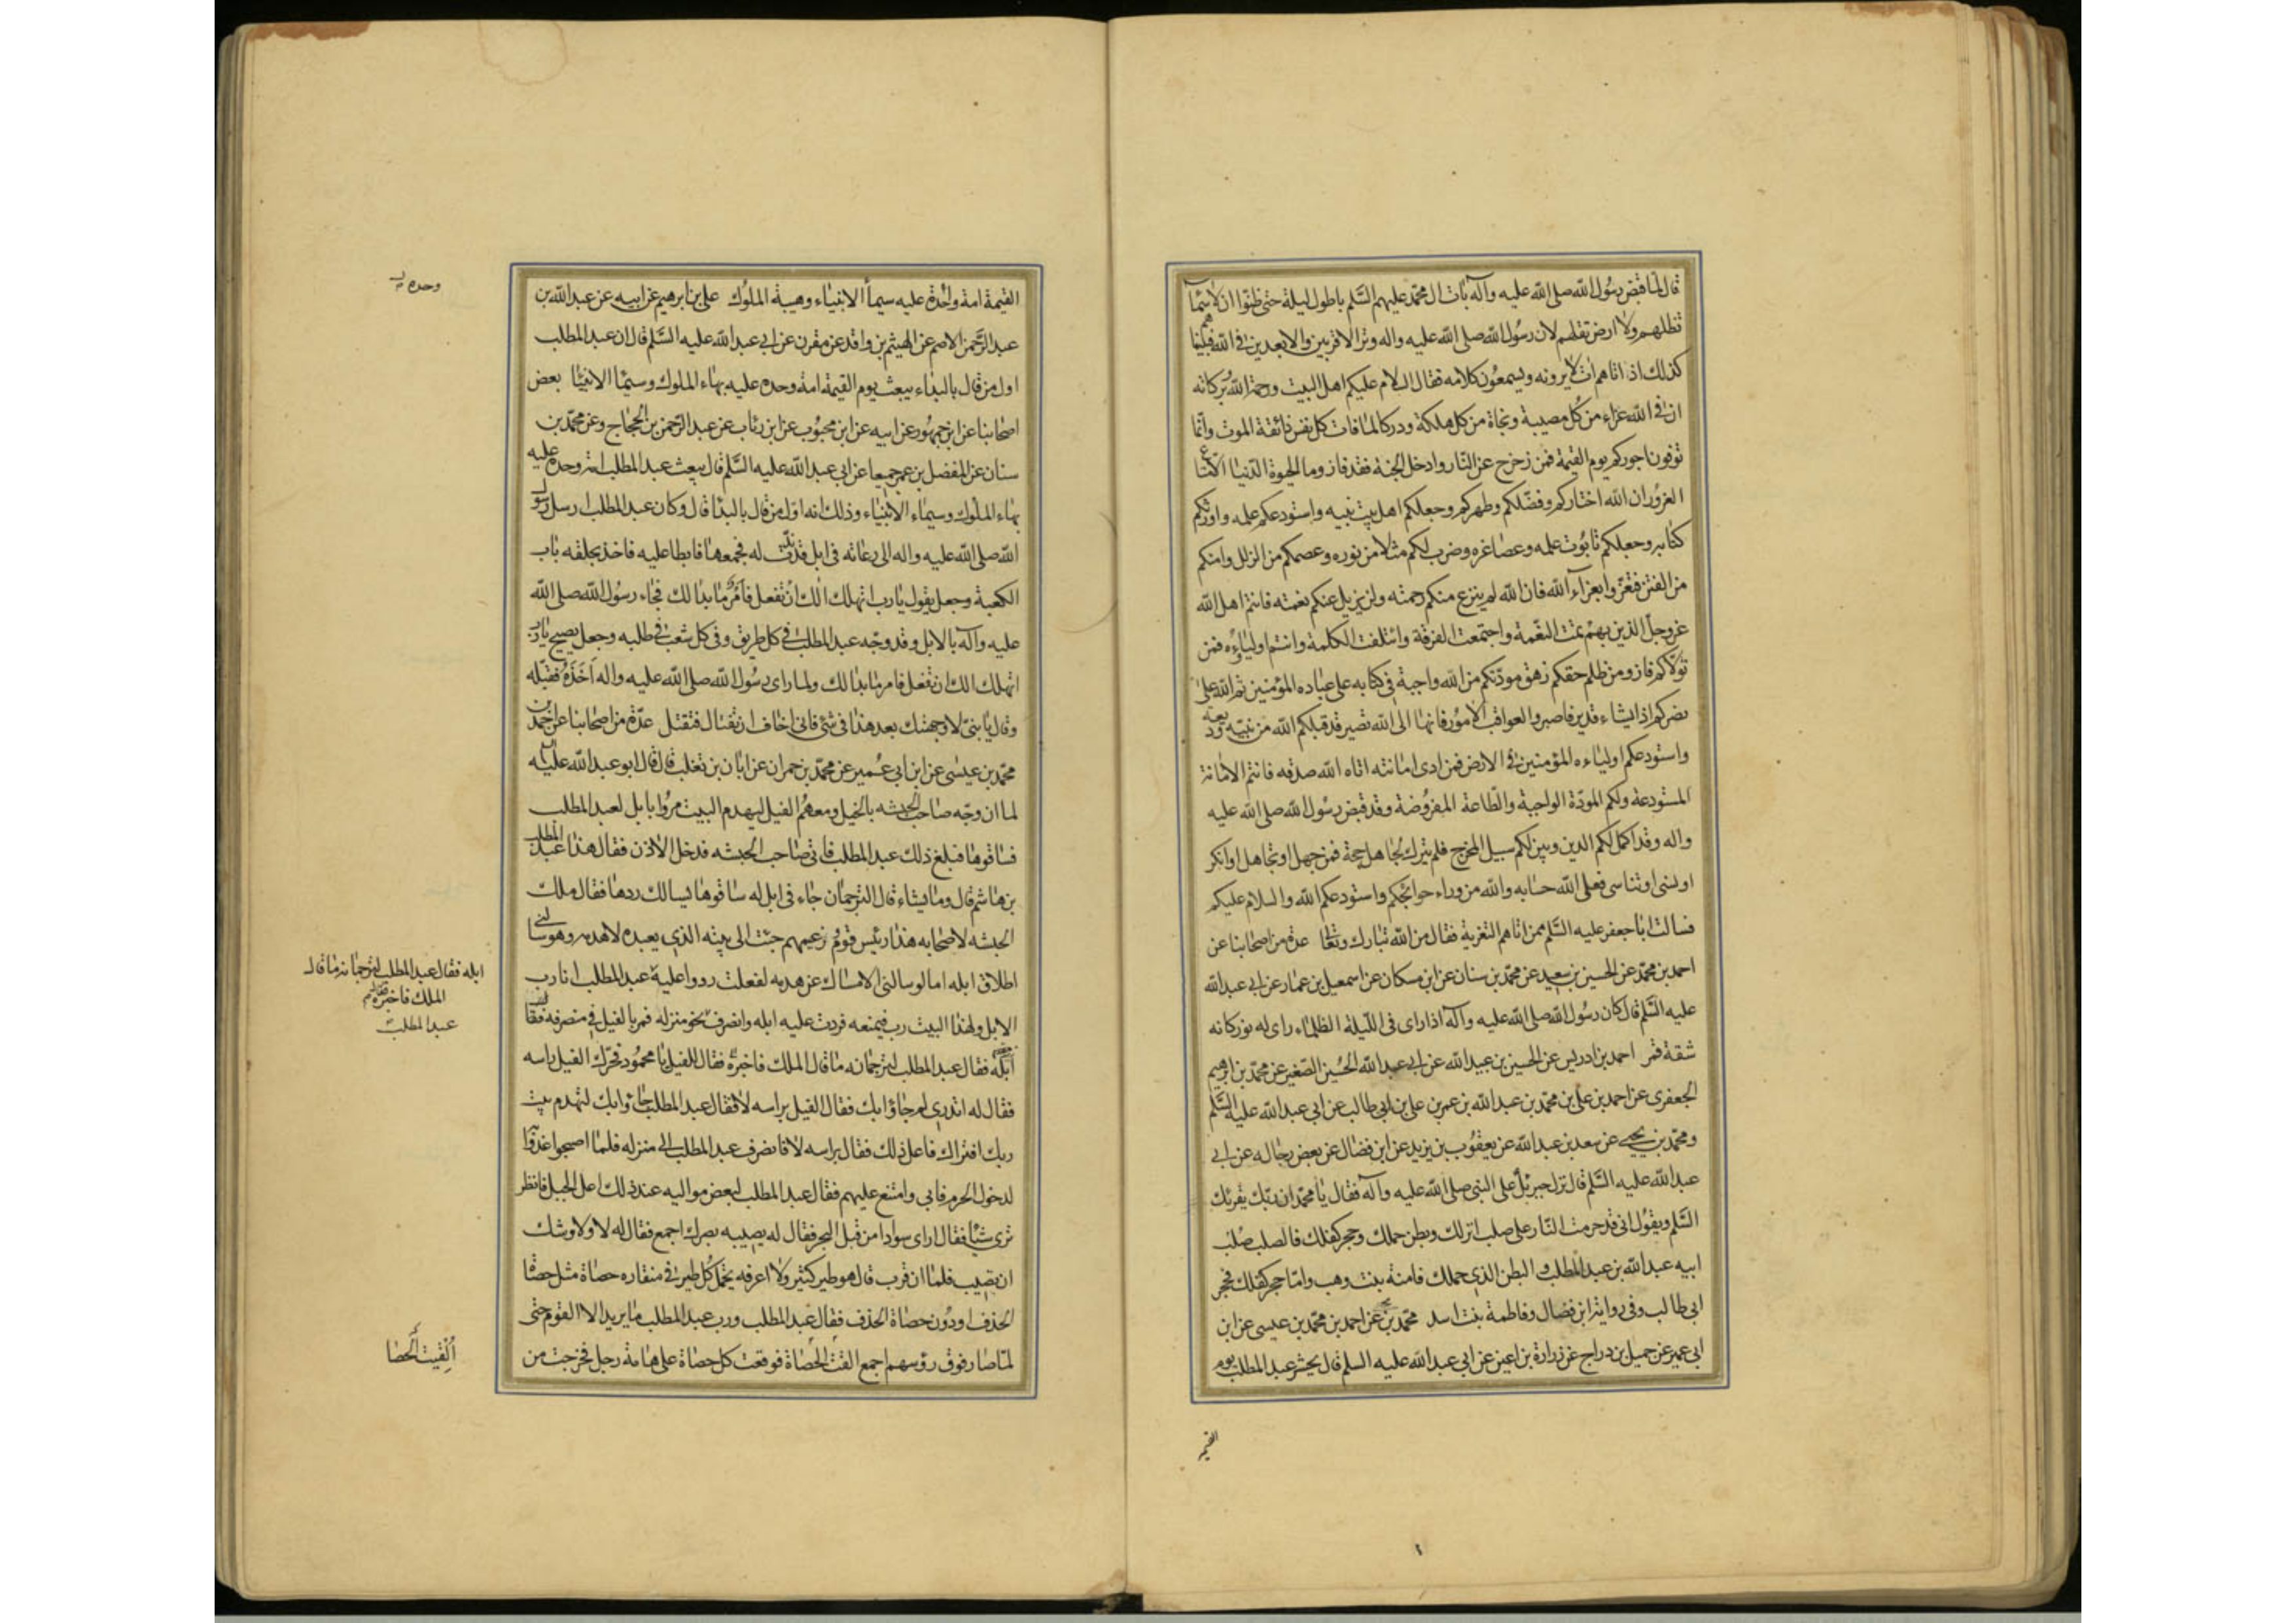 قال لما قبض رسول الله صلى الله عليه وآله بات ال محمد عليهم السلم باطول ليلة حتى ظنوا ان لا سما
تظلهم ولا ارض تقلهم لان رسول الله صلى الله عليه واله وتر الاقربين والابعدين في الله فبينا هم
كذلك اذ اتاهم ات لا يرونه ويسمعون كلامه فقال السلام عليكم اهل البيت ورحمة الله وبركاته
ان في الله عزاء من كل مصيبة ونجاة من كل هلكة ودركا لما فات كل نفس ذائقة الموت وانما
توفون اجوركم يوم القيمة فمن زحزح عن النار وادخل الجنة فقد فاز وما الحيوة الدنيا الا متاع
الغرور ان الله اختاركم وفضلكم وطهركم وجعلكم اهل بيت نبيه واستودعكم علمه واورثكم
كتابه وجعلكم تابوت علمه وعصا عزه وضرب لكم مثلا من نوره وعصمكم من الزلل وامنكم
من الفتن فتعزوا بعزاء الله فان الله لم ينزع منكم رحمته ولن يزيل عنكم نعمته فانتم اهل الله
عز وجل الذين بهم تمت النعمة واجتمعت الفرقة وائتلفت الكلمة وانتم اولياؤه فمن
تولاكم فاز ومن ظلم حقكم زهق مودتكم من الله واجبة في كتابه على عباده المؤمنين ثم الله على
نصركم اذا يشاء قدير فاصبروا لعواقب الامور فانها الى الله تصير قد قبلكم الله من نبيه وديعة
واستودعكم اولياءه المؤمنين في الارض فمن ادى امانته اتاه الله صدقه فانتم الامانة
المستودعة ولكم المودة الواجبة والطاعة المفروضة وقد قبض رسول الله صلى الله عليه
واله وقد اكمل لكم الدين وبين لكم سبيل المخرج فلم يترك لجاهل حجة فمن جهل او تجاهل او انكر
او نسى او تناسى فعلى الله حسابه والله من وراء حوائجكم واستودعكم الله والسلام عليكم
فسالت ابا جعفر عليه السلم ممن اتاهم التعزية فقال من الله تبارك وتعالى عدة من اصحابنا عن
احمد بن محمد عن الحسين بن سعيد عن محمد بن سنان عن ابن مسكان عن اسمعيل بن عمار عن ابي عبد الله
عليه السلم قال كان رسول الله صلى الله عليه وآله اذا راى في الليلة الظلماء راى له نور كانه
شقة قمر احمد بن ادريس عن الحسين بن عبيد الله عن ابي عبد الله الحسين الصغير عن محمد بن ابرهيم
الجعفري عن احمد بن علي بن محمد بن عبد الله بن عمر بن علي بن ابي طالب عن ابي عبد الله عليه السلم
ومحمد بن يحيى عن سعد بن عبد الله عن يعقوب بن يزيد عن ابن فضال عن بعض رجاله عن ابي
عبد الله عليه السلم قال نزل جبرئيل على النبي صلى الله عليه وآله فقال يا محمد ان ربك يقرئك
السلم ويقول اني قد حرمت النار على صلب انزلك وبطن حملك وحجر كفلك فالصلب صلب
ابيه عبد الله بن عبد المطلب والبطن الذي حملك فامنة بنت وهب واما حجر كفلك فحجر
ابي طالب وفي رواية ابن فضال وفاطمة بنت اسد محمد بن يحيى عن احمد بن محمد بن عيسى عن ابن
ابي عمير عن جميل بن دراج عن زرارة بن اعين عن ابي عبد الله عليه السلم قال يحشر عبد المطلب يوم
القيمة
القيمة امة واحدة عليه سيماء الانبياء وهيبة الملوك علي بن ابرهيم عن ابيه عن عبد الله بن
وحده
عبد الرحمن الاصم عن الهيثم بن واقد عن مقرن عن ابي عبد الله عليه السلم قال ان عبد المطلب
اول من قال بالبداء يبعث يوم القيمة امة وحده عليه بهاء الملوك وسيما الانبيا بعض
اصحابنا عن ابن جمهور عن ابيه عن ابن محبوب عن ابن رئاب عن عبد الرحمن بن الحجاج وعن محمد بن
سنان عن المفضل بن عمر جميعا عن ابي عبد الله عليه السلم قال يبعث عبد المطلب امة وحده عليه
بهاء الملوك وسيماء الانبياء وذلك انه اول من قال بالبدا قال وكان عبد المطلب ارسل رسول
الله صلى الله عليه واله الى رعاته في ابل قد ندت له فجمعها فابطا عليه فاخذ بحلقه باب
الكعبة وجعل يقول يا رب اتهلك الك ان تفعل فامر ما بدا لك فجاء رسول الله صلى الله
عليه وآله بالابل وقد وجه عبد المطلب في كل طريق وفي كل شعب في طلبه وجعل يصيح يا رب
اتهلك الك ان تفعل فامر ما بدا لك ولما راى رسول الله صلى الله عليه واله اخذه فقبله
وقال يا بني لا وجهتك بعد هذا في شئ فاني اخاف ان تغتال فتقتل عدة من اصحابنا عن احمد بن
محمد بن عيسى عن ابن ابي عمير عن محمد بن حمران عن ابان بن تغلب قال قال ابو عبد الله عليه
لما ان وجه صاحب الحبشه بالخيل ومعهم الفيل ليهدم البيت مروا بابل لعبد المطلب
فساقوها فبلغ ذلك عبد المطلب فاتى صاحب الحبشه فدخل الاذن فقال هذا عبد المطلب
بن هاشم قال وما يشاء قال الترجمان جاء في ابل له ساقوها يسالك ردها فقال ملك
الحبشه لاصحابه هذا رئيس قوم زعيمهم جئت الى بيته الذي يعبده لاهدمه وهو يسالني
اطلاق ابله اما لو سالني الامساك عن هدمه لفعلت ردوا عليه عبد المطلب انا رب
ابله فقال عبد المطلب لترجمانه ما قال
الملك فاخبره
عبد المطلب
الابل ولهذا البيت رب يمنعه فردت عليه ابله وانصرف نحو منزله فمر بالفيل في منصرفه فقال
ابله فقال عبد المطلب لترجمانه ما قال الملك فاخبره فقال للفيل يا محمود فحرك الفيل راسه
فقال له اتدري لم جاؤا بك فقال الفيل براسه لا فقال عبد المطلب جاؤا بك لتهدم بيت
ربك افتراك فاعل ذلك فقال براسه لا فانصرف عبد المطلب الى منزله فلما اصبحوا غدوا به
لدخول الحرم فابى وامتنع عليهم فقال عبد المطلب لبعض مواليه عند ذلك اعل الجبل فانظر
ترى شيئا فقال ارى سوادا من قبل البحر فقال له يصيبه بصرك اجمع فقال له لا ولا وشك
ان يصيب فلما ان قرب قال هو طير كثير ولا اعرفه يحمل كل طير في منقاره حصاة مثل حصاة
الحذف او دون حصاة الحذف فقال عبد المطلب ورب عبد المطلب ما يريد الا القوم حتى
لما صار فوق رؤسهم اجمع القت الحصاة فوقعت كل حصاة على هامة رجل فخرجت من
القيت الحصا